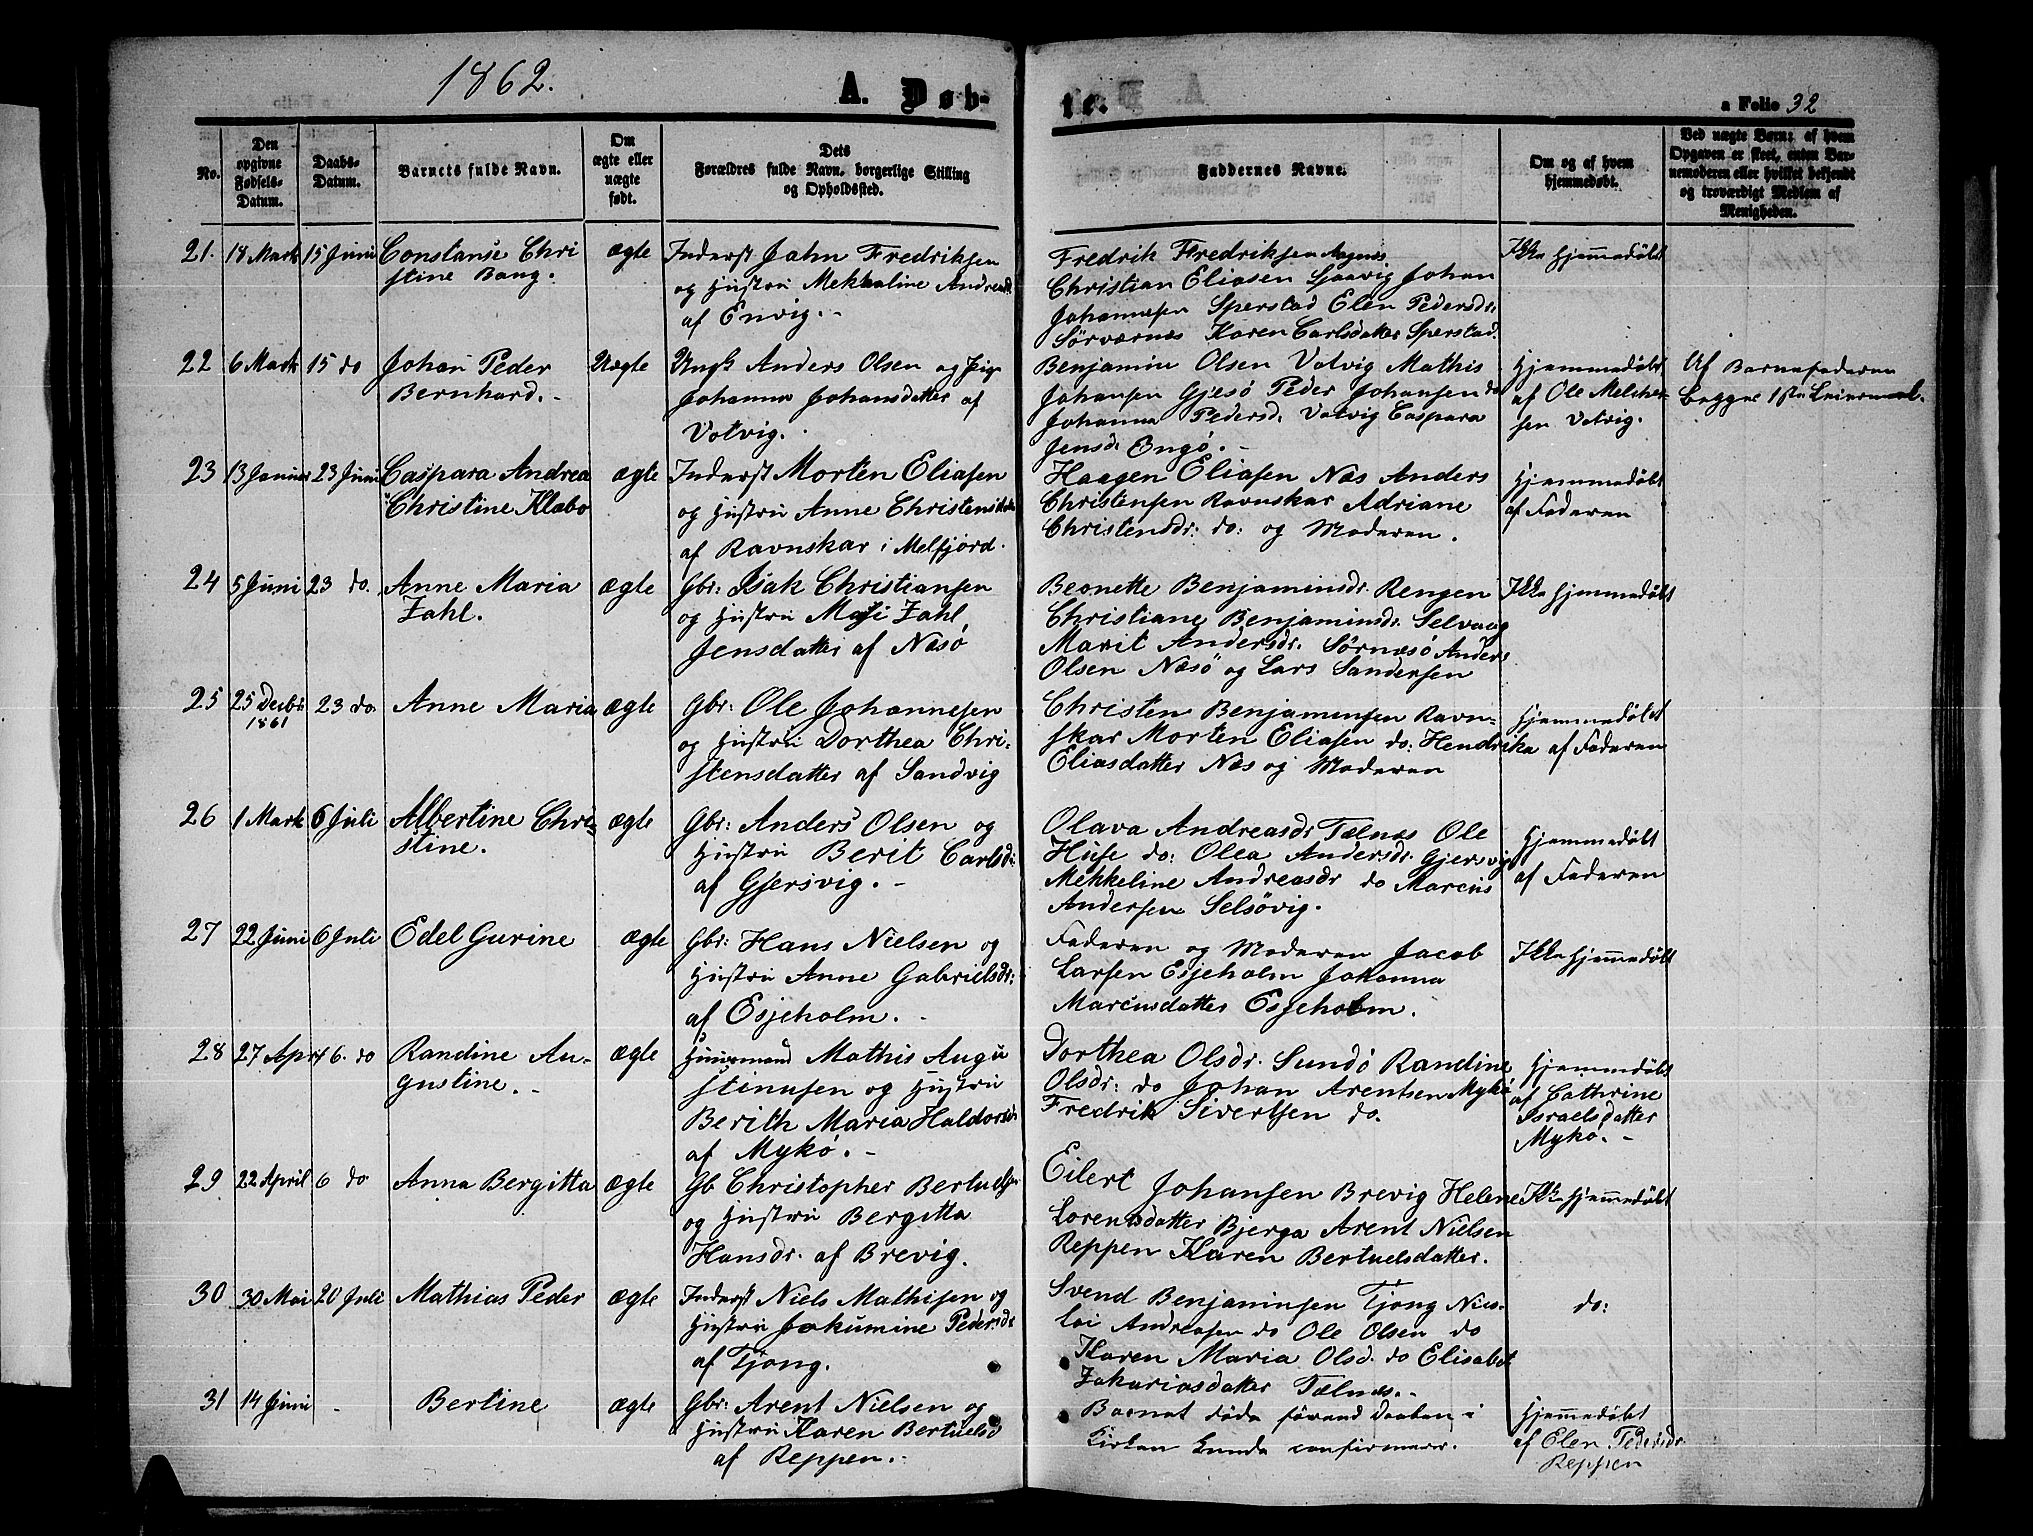 1862.
A. Døb-
te.
a Folio 32
No.
Den opgivne Fødsels-Datum.
Daabs-Datum.
Barnets fulde Navn.
Om ægte eller uægte født.
Dets Forældres fulde Navn, borgerlige Stilling og Opholdssted.
Faddernes Navne.
Om og af hvem hjemmedøbt.
Ved uægte Børn: af hvem Opgaven er skeet, enten Barnemoderen eller hvilket bekjendt og troværdigt Medlem af Menigheden.
21. 18 Marts 15 Juni Constanse Chri
stine Bang.
ægte
Inderst Jahn Fredriksen
og Hustru Mekkaline Andreasd.
af Envig. -
Fredrik Fredriksen Aagnes
Christian Eliasen Sjaavig Johan
Johannesen Sperstad Elen Pedersdr.
Sørværnes Karen Carlsdatter Sperstad.
Ikke hjemmedøbt
22 6 Marts 15 do Johan Peder
Bernhard. -
Uægte
Ungk Anders Olsen og Pig
Johanna Johansdatter af
Votvig.
Benjamin Olsen Votvig Mathis
Johansen Gjesø Peder Johansen do
Johanna Pedersd. Votvig Caspara
Jensd. Engö. -
Hjemmedøbt
af Ole Melcher-
sen Votvig.
Af Barnefaderen
begges 1ste Leiermaal.
23 13 Januar 23 Juni Caspara Andrea
Christine Klæbo
ægte
Inderst Morten Eliasen
og Hustru Anne Christensdatter
af Ravnskar i Melfjord.
Haagen Eliasen Næs Anders
Christensen Ravnskar Adriane
Christensdr. do: og Moderen.
Hjemmedøbt
af Faderen
24 5 Juni 23 do. Anne Maria
Zahl.
ægte
Gbr: Isak Christiansen
og Hustru Masi Zahl
Jensdatter af Næsö
Beonette Benjaminsdr. Rengen
Christiane Benjaminsdr. Selvaag
Marit Andersdr. Sørnæsö Anders
Olsen Næsö og Lars Sandersen
Ikke hjemmedøbt
25 25 Decbr 1861 23 do. Anne Maria
ægte
Gbr: Ole Johannesen
og Hustru Dorthea Chri-
stensdatter af Sandvig
Christen Benjaminsen Ravn-
skar Morten Eliasen do: Hendrika
Eliasdatter Næs og Moderen
Hjemmedøbt
af Faderen
26 1 Marts 6 Juli Albertine Chri-
stine.
ægte
Gbr: Anders Olsen og
Hustru Berit Carlsdr:
af Gjersvig. -
Olava Andreasdr Tælnæs Ole
Huse do: Olea Andersdr. Gjersvig
Mekkeline Andreasdr do Marcus
Andersen Selsövig.
Hjemmedøbt
af Faderen
27 22 Juni 6 Juli Edel Gurine
ægte
Gbr: Hans Nielsen og
Hustru Anne Gabrielsdr:
af Esjeholm. -
Faderen og Moderen Jacob
Larsen Esjeholm Johanna
Marcusdatter Esjeholm.
Ikke hjemmedøbt
28 27 April 6. do Randine Au-
gustine. -
ægte
Huusmand Mathis Augu
stinusen og Hustru
Berith Maria Haldorsdr.
af Mykö. -
Dorthea Olsdr. Sundö Randine
Olsdr: do Johan Arentsen Mykö
Fredrik Sivertsen do.
Hjemmedøbt
af Cathrine
Israelsdatter
Mykö. -
29 22 April 6 do Anna Bergitta
ægte
Gb Christopher Bertuelsen
og Hustru Bergitta
Hansdr. af Brevig.
Eilert Johansen Brevig Helene
Lorentsdatter Bjerga Arent Nielsen
Reppen Karen Bertuelsdatter.
Ikke hjemmedøbt
30 30 Mai 20 Juli Mathias Peder
ægte
Inderst Niels Mathisen og
Hustru Jokumine Pedersdr
af Tjong.
Svend Benjaminsen Tjong Nico-
lai Andreasen do Ole Olsen do
Karen Maria Olsd. do Elisabet
Zakariasdatter Tælnes. -
do:
31 14 Juni - Bertine
ægte
Gbr: Arent Nielsen og
Hustru Karen Bertuelsd
af Reppen. -
Barnet døde førend Daaben i
Kirken kunde confirmeres.
Hjemmedøbt
af Elen Pedersdr.
Reppen